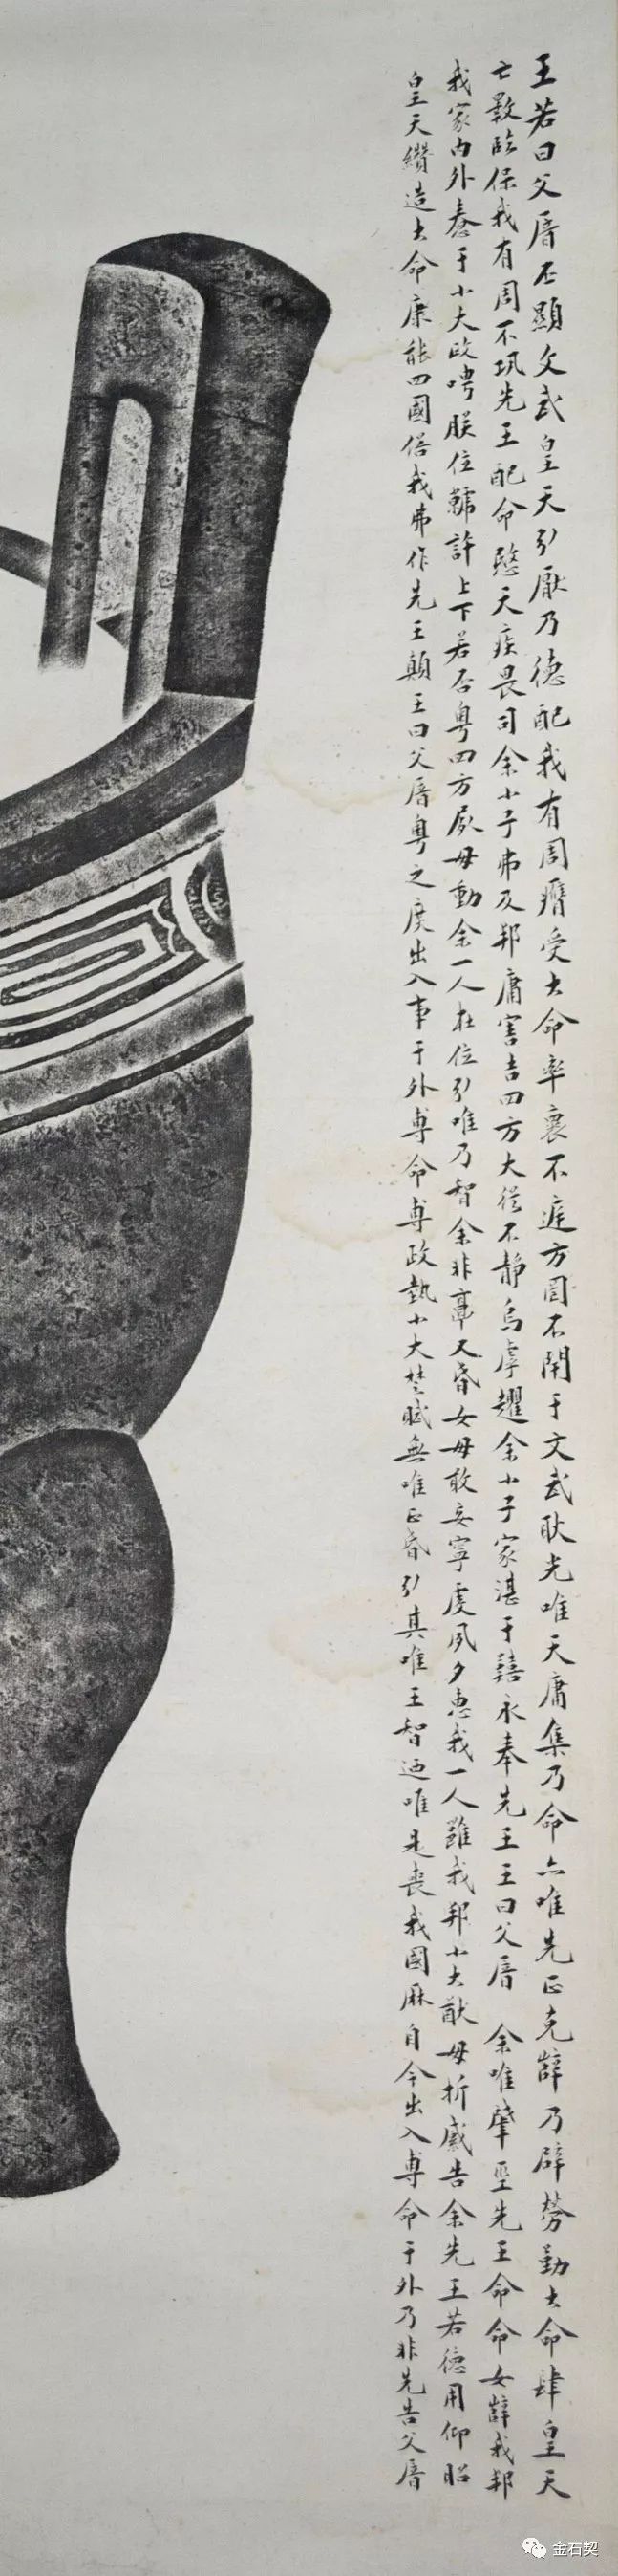 王若曰父㕌丕顯文武皇天引厭乃德配我有周膺受大命率褱不廷方罔不閈于文武耿光唯天庸集乃命亦唯先正克辥乃辟勞勤大命肆皇天
亡斁臨保我有周不巩先王配命愍天疾畏司余小子弗及邦庸害吉四方大從不靜烏虖趯余小子家湛于囏永奉先王王曰父㕌 余唯肇巠先王命命女辥我邦
我家內外惷于小大政甹朕位虩許上下若否雩四方死毋動余一人在位引唯乃智余非庸又昏女毋敢妄寧虔夙夕惠我一人雝我邦小大猷毋折緘告余先王若德用仰昭
皇天纘造大命康能四國俗我弗作先王顛王曰父㕌雩之庶出入事于外尃命尃政埶小大楚賦無唯正昏引其唯王智迺唯是喪我國厤自今出入尃命于外乃非先告父㕌
金石契